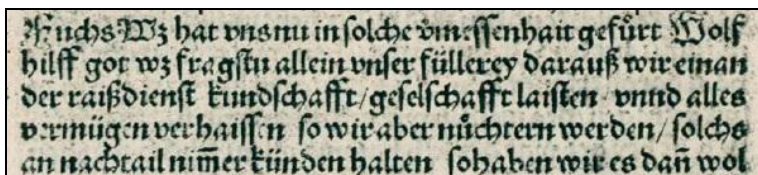 Fuchs Wz hat vns nu in solche v̈messenhait gefuͤrt Wolf
hilff got wz fragstu allein vnser füllerey darauß wir einan
der raißdienst kundschafft/geselschafft laisten vnnd alles
vermügen verhaissen so wir aber nuͤchtern werden/ solchs
an nachtail nim̄er künden halten so haben wir es dan̄ wol